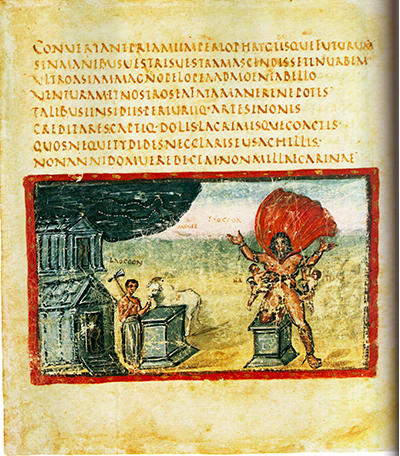 CONVERTANTPRIAMIIMPERIOPHRYGIBUSQUEFUTURUM
SINMANIBUSVESTRISVESTRAMASCENDISSETINURBEM
ULTROASIAMMAGNOPELOPEAADMOENIABELLO
VENTURAMETNOSTROSEAFATAMANERENEPOTES
TALIBUSINSIDIISPERIURIQ·ARTESINONIS
CREDITARESCAPTIQ·DOLISLACRIMISQUECOACTIS
QUOSNEQUETYDIDESNECLARISEUSACHILLES
NONANNIDOMUEREDECEMNONMILLECARINAE
LAOCOON
LAOCOON